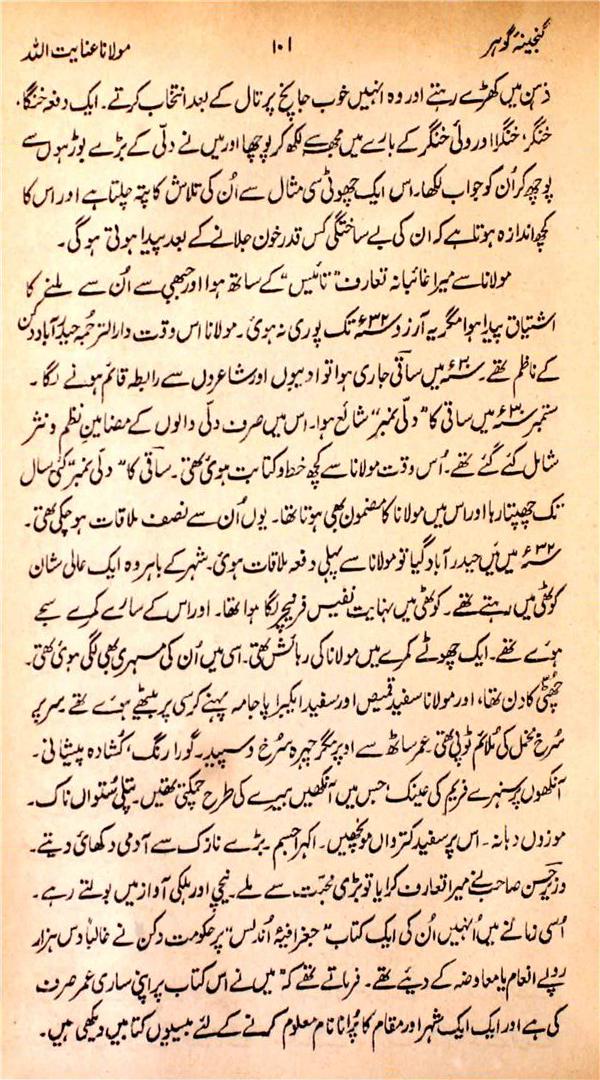 گنجینۂ گوہر ۱۰۱ مولانا عنایت اللہ
ذہن میں کھڑے رہتے اور وہ انہیں خوب جانچ پرتال کے بعد انتخاب کرتے۔ ایک دفعہ خنگا،
خنگر، خنگلا اور ولی خنگر کے بارے میں مجھسے لکھ کر پوچھا اور میں نے دلّی کے بڑے بوڑھوں سے
پوچھ کر اُن کو جواب لکھا۔ اس ایک چھوٹی سی مثال سے اُن کی تلاش کا پتہ چلتا ہے اور اس کا
کچھ اندازہ ہوتا ہے کہ ان کی بے ساختگی کس قدر خون جلانے کے بعد پیدا ہوتی ہوگی۔
مولانا سے میرا غائبانہ تعارف "تائیس" کے ساتھ ہوا اور جبھی سے اُن سے ملنے کا
اشتیاق پیدا ہوا مگر یہ آرزو ۳۲ء تک پوری نہ ہوئی۔ مولانا اس وقت دارالترجمہ حیدرآباد دکن
کے ناظم تھے۔ ۳۰ء میں ساقی جاری ہوا تو ادیبوں اور شاعروں سے رابطہ قائم ہونے لگا۔
ستمبر ۳۰ء میں ساقی کا "دلّی نمبر" شائع ہوا۔ اس میں صرف دلّی والوں کے مضامینِ نظم و نثر
شامل کئے گئے تھے۔ اُس وقت مولانا سے کچھ خط و کتابت ہوئی تھی۔ ساقی کا "دلّی نمبر" کئی سال
تک چھپتا رہا اور اس میں مولانا کا مضمون بھی ہوتا تھا۔ یوں اُن سے نصف ملاقات ہو چکی تھی۔
۳۲ء میں مَیں حیدرآباد گیا تو مولانا سے پہلی دفعہ ملاقات ہوئی۔ شہر کے باہر وہ ایک عالی شان
کوٹھی میں رہتے تھے۔ کوٹھی میں نہایت نفیس فرنیچر لگا ہوا تھا۔ اور اس کے سارے کمرے سجے
ہوئے تھے۔ ایک چھوٹے کمرے میں مولانا کی رہائش تھی۔ اسی میں اُن کی مسہری بھی لگی ہوئی تھی۔
چھٹّی کا دن تھا، اور مولانا سفید قمیص اور سفید ایکبرا پاجامہ پہنے کرسی پر بیٹھے ہوئے تھے۔ سر پر
سُرخ مخمل کی مُلائم ٹوپی تھی۔ عمر ساٹھ سے اوپر مگر چہرہ سُرخ و سپید۔ گورا رنگ، کشادہ پیشانی۔
آنکھوں پر سنہرے فریم کی عینک، جس میں آنکھیں ہیرے کی طرح چمکتی تھیں۔ پتلی سُتواں ناک۔
موزوں دہانہ۔ اس پر سفید کترواں مونچھیں۔ اکہرا جسم۔ بڑے نازک سے آدمی دکھائی دیتے۔
وزیر حسن صاحب نے میرا تعارف کرایا تو بڑی محبّت سے ملے۔ نیچی اور ہلکی آواز میں بولتے رہے۔
اُسی زمانے میں اُنہیں اُن کی ایک کتاب "جغرافیۂ اُندلس" پر حکومت دکن نے غالباً دس ہزار
روپے انعام یا معاوضہ کے دیئے تھے۔ فرماتے تھے کہ "میں نے اس کتاب پر اپنی ساری عمر صرف
کی ہے اور ایک ایک شہر اور مقام کا پُرانا نام معلوم کرنے کے لئے بیسیوں کتابیں دیکھی ہیں۔